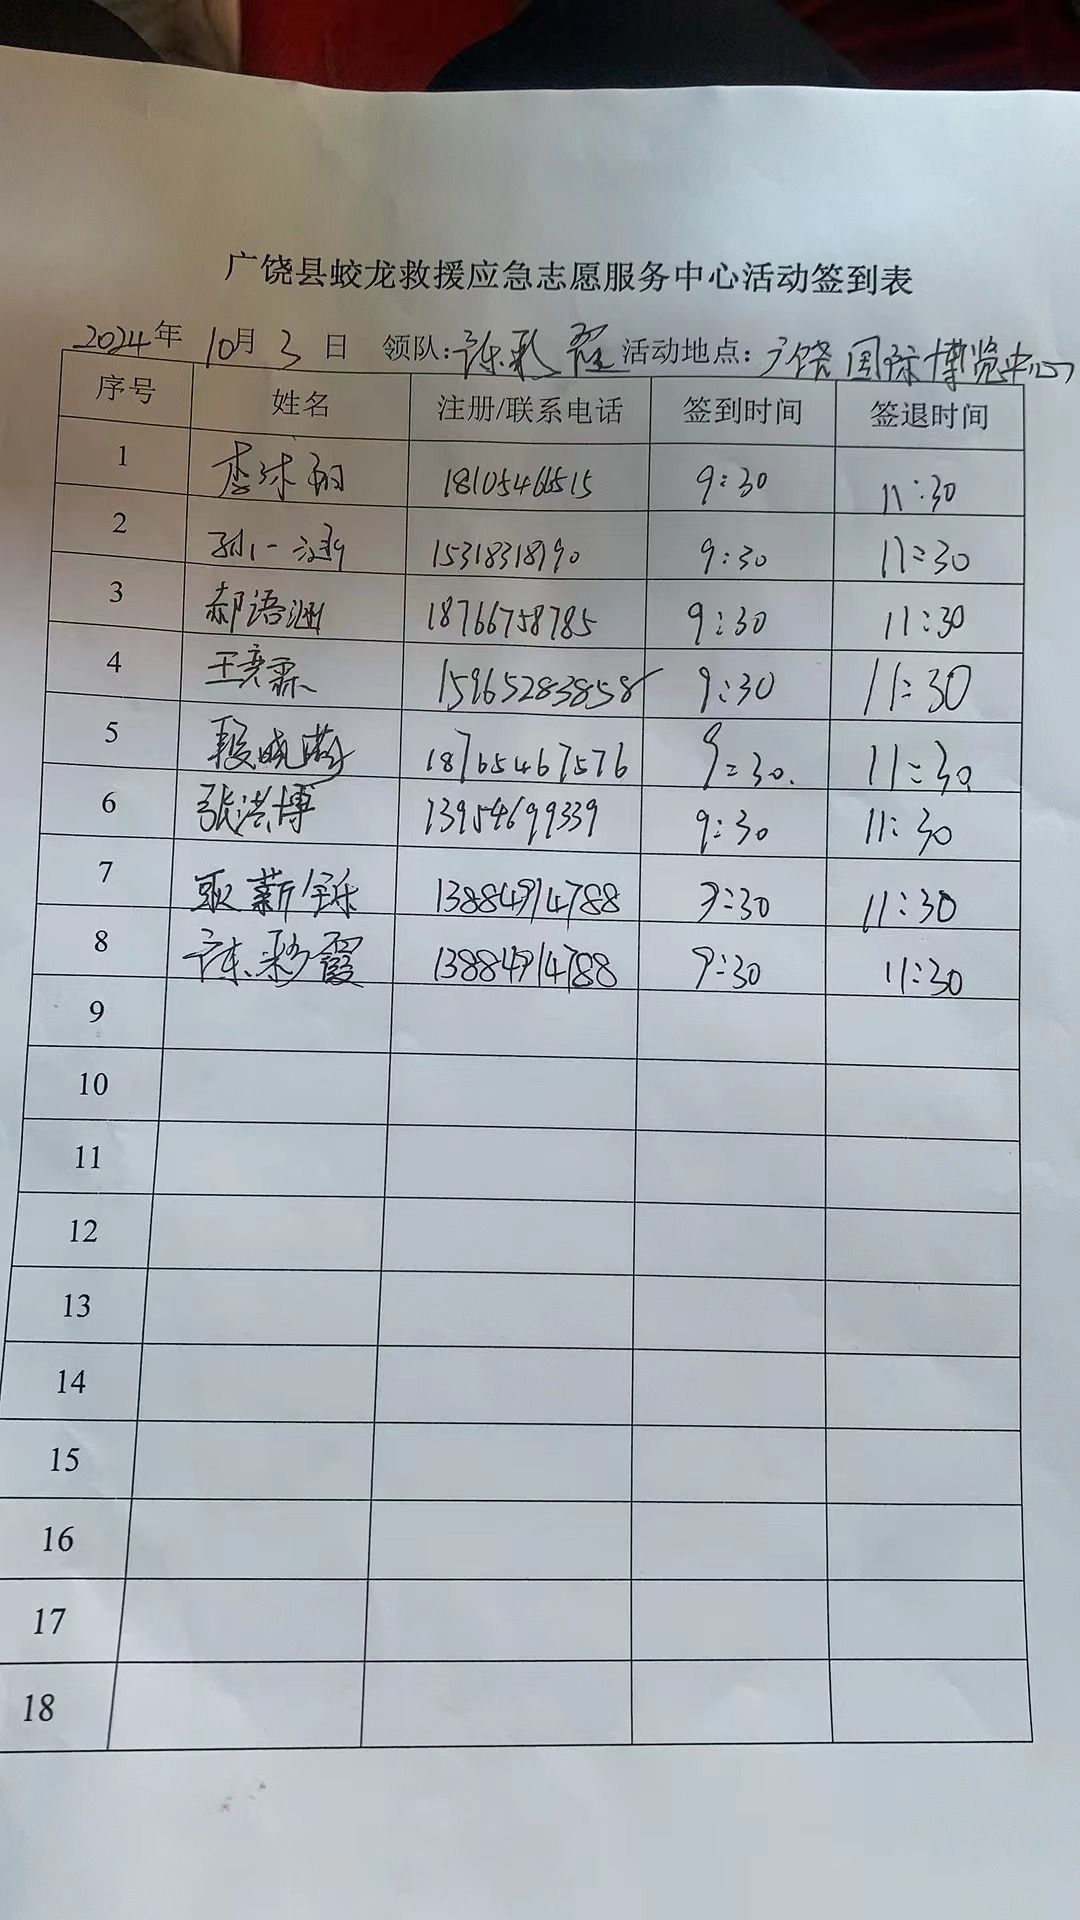 广饶县蛟龙救援应急志愿服务中心活动签到表
2024年 10月 3 日 领队: 活动地点: 广饶国际博览中心
序号 姓名 注册/联系电话 签到时间 签退时间
1 18105466515 9:30 11:30
2 孙一涵 15318318790 9:30 11:30
3 郝语涵 18766758785 9:30 11:30
4 王奕霖 15965283858 9:30 11:30
5 段晓 18765467576 9:30 11:30
6 张洪博 13954699339 9:30 11:30
7 耿薪铄 13884914788 9:30 11:30
8 彩霞 13884914788 9:30 11:30
9
10
11
12
13
14
15
16
17
18